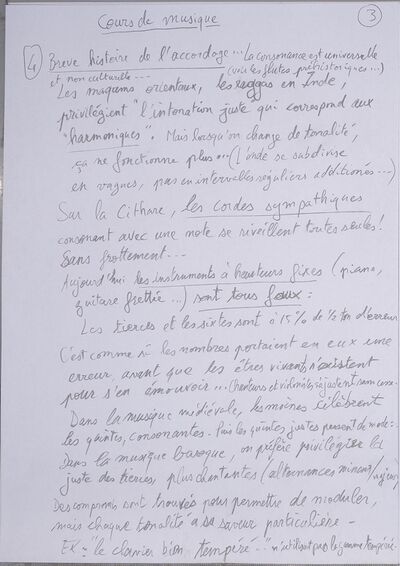 Cours de musique
3
4 Breve histoire de l'accordage... La consonance est universelle
et non culturelle... (voir les flutes préhistoriques...)
Les maqums orientaux, les raggas en Inde,
privilégient "l'intonation juste qui correspond aux
"harmoniques". Mais lorsqu'on change de tonalité,
ça ne fonctionne plus... (L'onde se subdivise
en vagues, pas en intervalles réguliers additionés...)
Sur la Cithare, les cordes sympathiques
consonant avec une note se réveillent toutes seules!
Sans frottement...
Aujourd'hui les instruments à hauteurs fixes (piano,
guitare frettée...) sont tous faux:
Les tierces et les sixtes sont à 15% de ½ ton d'erreur
C'est comme si les nombres portaient en eux une
erreur, avant que les êtres vivants n'existent
pour s'en émouvoir... Chanteurs et violonistes réajustent sans cesse.
Dans la musique médiévale, les moines célèbrent
les quintes, consonantes. Puis les quintes justes passent de mode:
Dans la musique baroque, on préfère privilégier la
juste des tierces, plus chantantes (alternances mineur/majeur)
Des compromis sont trouvés pour permettre de moduler,
mais chaque tonalité a sa saveur particulière -
EX: "le clavier bien tempéré..." n'utilisant pas la gamme tempérée.